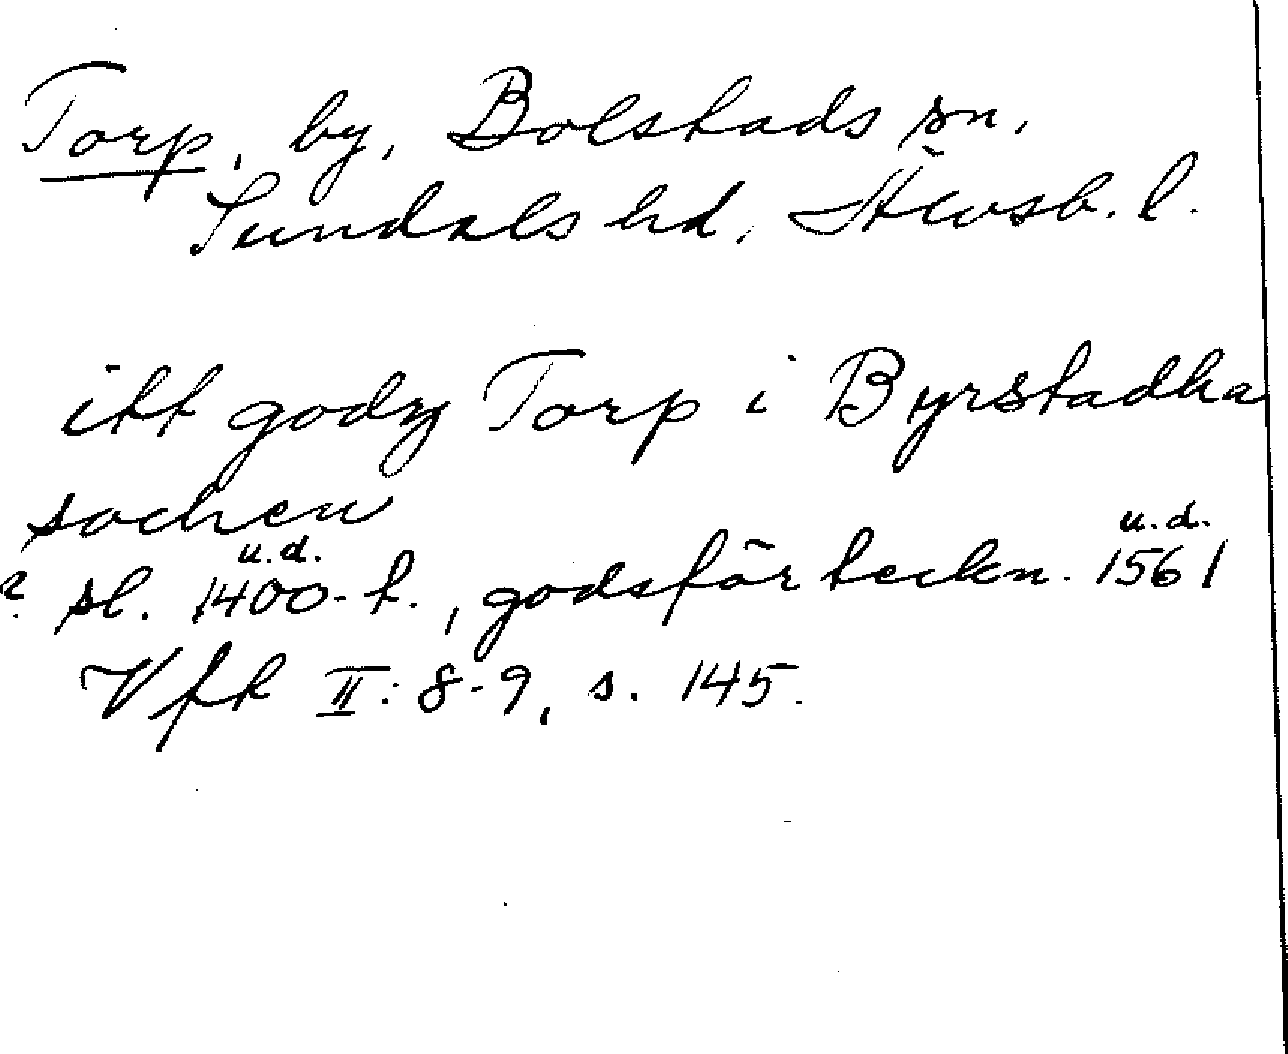 Torp, by, Bolstads sn,
Sundals hd, Älvsb. l.
itt godz Torp i Byrstadha
sochen
u.d. u.d.
? sl. 1400-t., godsförteckn. 1561
Vfk II: 8-9, s. 145.